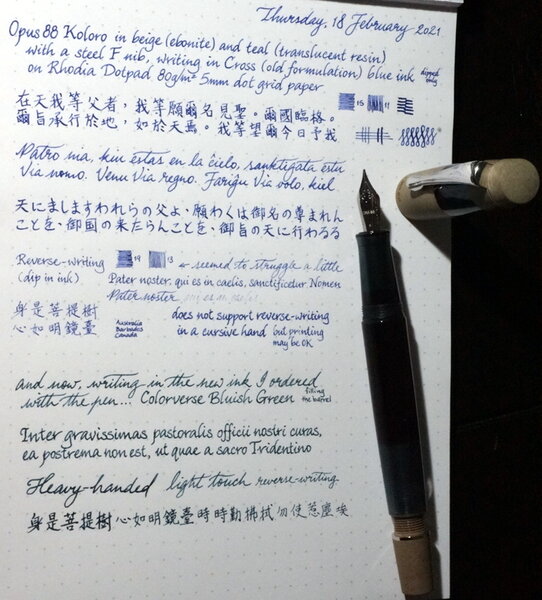 Thursday, 18 February 2021
Opus 88 Koloro in beige (ebonite) and teal (translucent resin)
with a steel F nib, writing in Cross (old formulation) blue ink dipped only
on Rhodia Dotpad 80g/m² 5mm dot grid paper
在天我等父者，我等願爾名見聖。爾國臨格。
爾旨承行於地，如於天焉。我等望爾今日予我
Patro nia, kiu estas en la ĉielo, sanktigata estu
Via nomo. Venu Via regno. Fariĝu Via volo, kiel
天にましますわれらの父よ、願わくは御名の尊まれん
ことを、御国の来たらんことを、御旨の天に行わるる
Reverse-writing 19 13 ← seemed to struggle a little
(dip in ink) Pater noster, qui es in caelis, sanctificetur Nomen
Pater noster qui es in caelis
身是菩提樹 does not support reverse-writing
心如明鏡臺 Australia Barbados Canada in a cursive hand but printing may be OK
and now, writing in the new ink I ordered
with the pen... Colorverse Bluish Green filling the barrel
Inter gravissimas pastoralis officii nostri curas,
ea postrema non est, ut quae a sacro Tridentino
Heavy-handed light touch reverse-writing
身是菩提樹心如明鏡臺時時勤拂拭勿使惹塵埃